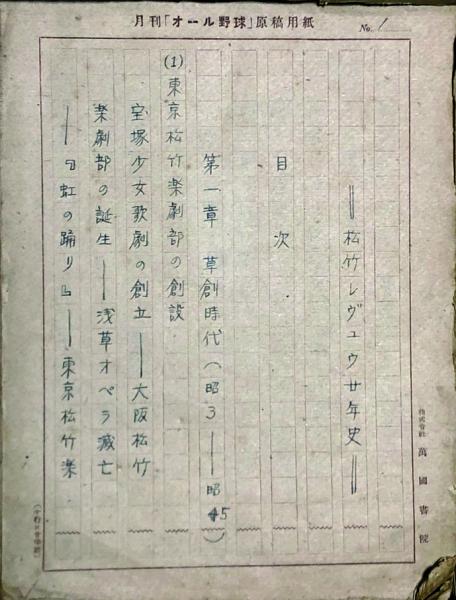 月刊「オール野球」原稿用紙
No. 1
＝松竹レヴュウ廿年史＝
目次
第一章 草創時代（昭3――昭5）
(1)東京松竹楽劇部の創設
宝塚少女歌劇の創立――大阪松竹
楽劇部の誕生――浅草オペラ滅亡
――『虹の踊り』――東京松竹楽
株式会社 萬國書院